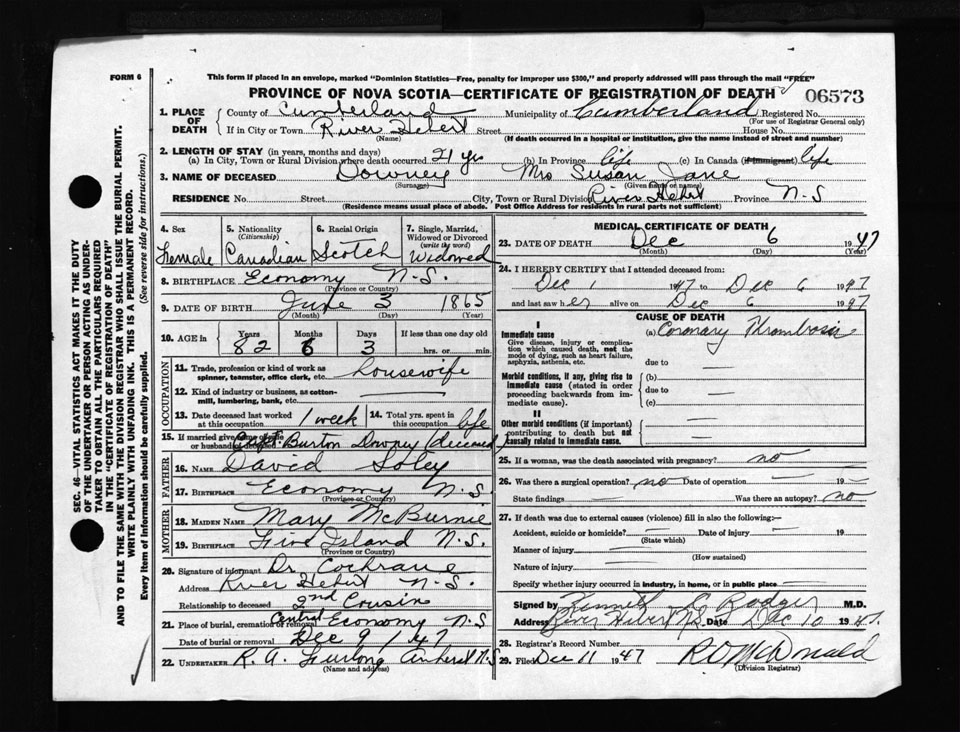 FORM 6
This form if placed in an envelope, marked "Dominion Statistics—Free, penalty for improper use $300," and properly addressed will pass through the mail "FREE"
PROVINCE OF NOVA SCOTIA—CERTIFICATE OF REGISTRATION OF DEATH
06573
1. PLACE OF DEATH County of Cumberland Municipality of Cumberland Registered No.
(For use of Registrar General only)
If in City or Town River Hebert Street House No.
(Name) (If death occurred in a hospital or institution, give the name instead of street and number)
2. LENGTH OF STAY (in years, months and days)
(a) In City, Town or Rural Division where death occurred 21 yrs (b) In Province life (c) In Canada (if immigrant) life
3. NAME OF DECEASED Downey Mrs Susan Jane
(Surname) (Given name or names)
RESIDENCE No. Street City, Town or Rural Division River Hebert Province N-S
(Residence means usual place of abode. Post Office Address for residents in rural parts not sufficient)
4. Sex 5. Nationality (Citizenship) 6. Racial Origin 7. Single, Married, Widowed or Divorced (write the word)
Female Canadian Scotch Widowed
8. BIRTHPLACE Economy N.S.
(Province or Country)
9. DATE OF BIRTH June 3 1865
(Month) (Day) (Year)
10. AGE in Years Months Days If less than one day old
82 6 3 hrs. or min.
OCCUPATION
11. Trade, profession or kind of work as spinner, teamster, office clerk, etc. Housewife
12. Kind of industry or business, as cotton-mill, lumbering, bank, etc. —
13. Date deceased last worked at this occupation 1 week 14. Total yrs. spent in this occupation life
15. If married give name of wife or husband of deceased Capt. Burton Downey (deceased)
FATHER
16. NAME David Soley
17. BIRTHPLACE Economy N.S.
(Province or Country)
MOTHER
18. MAIDEN NAME Mary McBurnie
19. BIRTHPLACE Five Island N.S.
(Province or Country)
20. Signature of informant Dr Cochrane
Address River Hebert N-S.
Relationship to deceased 2nd Cousin
21. Place of burial, cremation or removal Central Economy N.S
Date of burial or removal Dec 9 / 47
22. UNDERTAKER R. A. Furlong Amherst N.S
(Name and address)
MEDICAL CERTIFICATE OF DEATH
23. DATE OF DEATH Dec 6 1947
(Month) (Day) (Year)
24. I HEREBY CERTIFY that I attended deceased from:
Dec 1 1947 to Dec 6 1947
and last saw her alive on Dec 6 1947
CAUSE OF DEATH
I
Immediate cause (a) Coronary Thrombosis
Give disease, injury or complication which caused death, not the mode of dying, such as heart failure, asphyxia, asthenia, etc.
due to —
Morbid conditions, if any, giving rise to immediate cause (stated in order proceeding backwards from immediate cause).
(b) —
due to —
(c) —
II
Other morbid conditions (if important) contributing to death but not causally related to immediate cause.
25. If a woman, was the death associated with pregnancy? no
26. Was there a surgical operation? no Date of operation — 19 —
State findings — Was there an autopsy? no
27. If death was due to external causes (violence) fill in also the following:—
Accident, suicide or homicide? — Date of injury — 19
(State which)
Manner of injury —
(How sustained)
Nature of injury —
Specify whether injury occurred in industry, in home, or in public place —
Signed by Kenneth C Rodger M.D.
Address River Hebert N.S. Date Dec 10 1947.
28. Registrar's Record Number
29. Filed Dec 11 1947 R D McDonald
(Division Registrar)
SEC. 46—VITAL STATISTICS ACT MAKES IT THE DUTY OF THE UNDERTAKER OR PERSON ACTING AS UNDERTAKER TO OBTAIN ALL THE PARTICULARS REQUIRED IN THE "CERTIFICATE OF REGISTRATION OF DEATH" AND TO FILE THE SAME WITH THE DIVISION REGISTRAR WHO SHALL ISSUE THE BURIAL PERMIT.
WRITE PLAINLY WITH UNFADING INK. THIS IS A PERMANENT RECORD.
Every item of information should be carefully supplied. (See reverse side for instructions.)